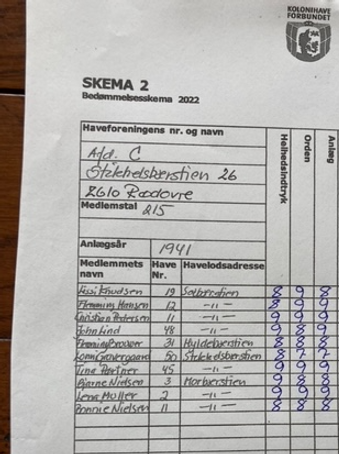 KOLONIHAVE
FORBUNDET
SKEMA 2
Bedømmelsesskema 2022
Haveforeningens nr. og navn
Afd. C
Stikkelsbærstien 26
2610 Rødovre
Medlemstal 215
Anlægsår 1941
Medlemmets navn Have Nr. Havelodsadresse Helhedsindtryk Orden Anlæg
Knudsen 19 Solbærstien 8 9 8
Flemming Hansen 12 -"- 8 9 9
Christian Pedersen 11 -"- 9 9 9
John Lind 48 -"- 9 8 9
Flemming 31 Hyldebærstien 8 8 8
50 Stikkelsbærstien 8 7 7
Tina Partner 45 -"- 9 9 9
Bjarne Nielsen 3 Morbærstien 9 8 8
Lena Møller 2 -"- 9 9 9
Bonnie Nielsen 11 -"- 8 8 8